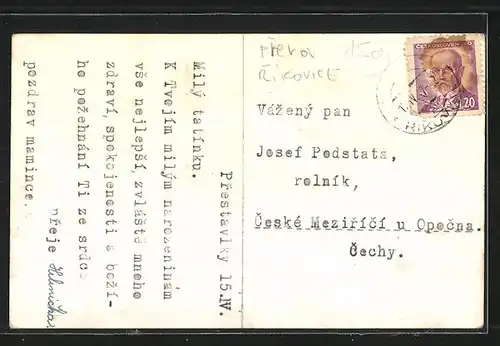 Přestavlky 15.IV.
Milý tatínku.
K Tvejím milým narozeninám
vše nejlepší, zvláště mnoho
zdraví, spokojenosti a boží-
ho požehnání Ti ze srdce
přeje Helenička.
pozdrav mamince.
Přerov 150,-
ŘÍKOVICE
ČESKOSLOVENSKO
20
ŘÍKOV
Vážený pan
Josef Podstata,
rolník,
České Meziříčí u Opočna.
Čechy.